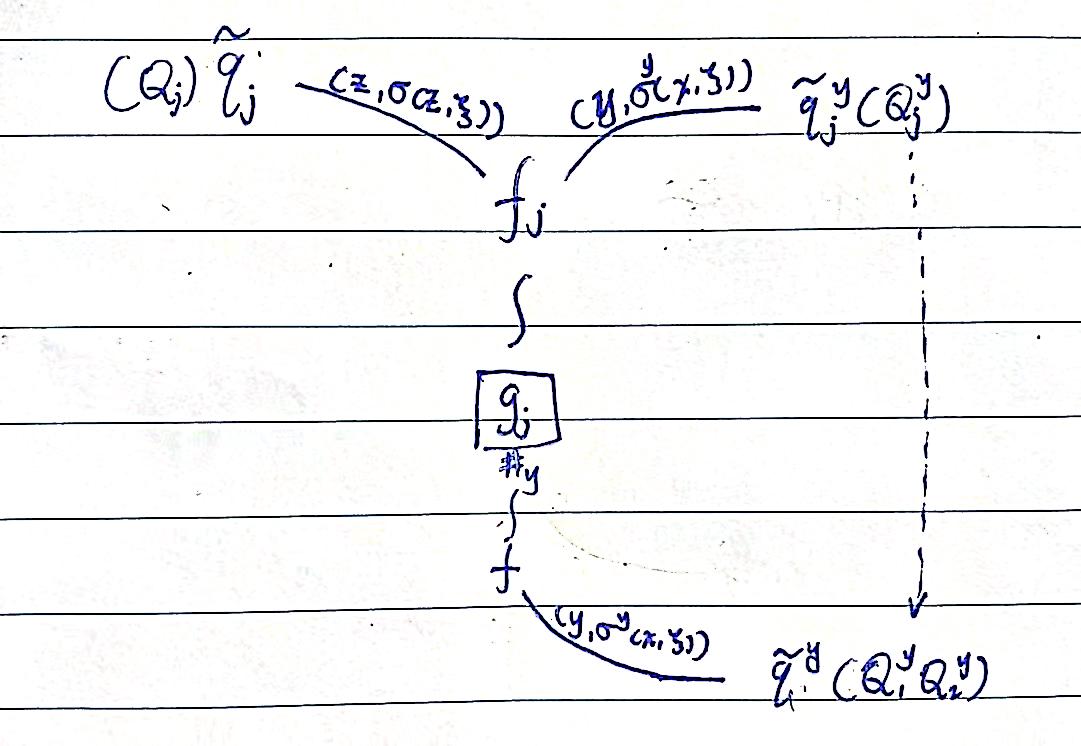 (Q_j) q̃_j (z, σ(z, ξ)) (y, σ^y(x, ξ)) q̃_j^y (Q_j^y)
f_j
∫
g_j
#_y
∫
f
(y, σ^y(x, ξ))
q̃^y (Q_1^y Q_2^y)